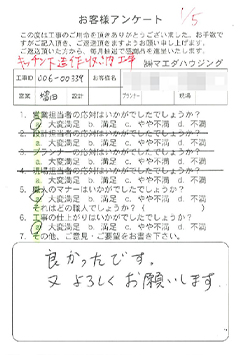 お客様アンケート
1/5
この度は工事のご用命を頂きありがとうございました。お手数で
すがご記入頂き、ご返送頂きますようお願い申し上げます。
ご返送頂いた方から、毎月抽選で感謝品を進呈いたします。
キッチン造作収納工事
㈱マエダハウジング
工事ID 006-00339 お客様名
営業 増田 設計 プランナー 現場
1. 営業担当者の応対はいかがでしたでしょうか?
a. 大変満足 b. 満足 c. やや不満 d. 不満
2. 設計担当者の応対はいかがでしたでしょうか?
a. 大変満足 b. 満足 c. やや不満 d. 不満
3. プランナーの応対はいかがでしたでしょうか?
a. 大変満足 b. 満足 c. やや不満 d. 不満
4. 現場担当者の応対はいかがでしたでしょうか?
a. 大変満足 b. 満足 c. やや不満 d. 不満
5. 職人のマナーはいかがでしたでしょうか?
a. 大変満足 b. 満足 c. やや不満 d. 不満
それはどの職人でしょうか?( )
6. 工事の仕上がりはいかがでしたでしょうか?
a. 大変満足 b. 満足 c. やや不満 d. 不満
7. その他、ご意見・ご要望をお書き下さい。
良かったです。
又よろしくお願いします。